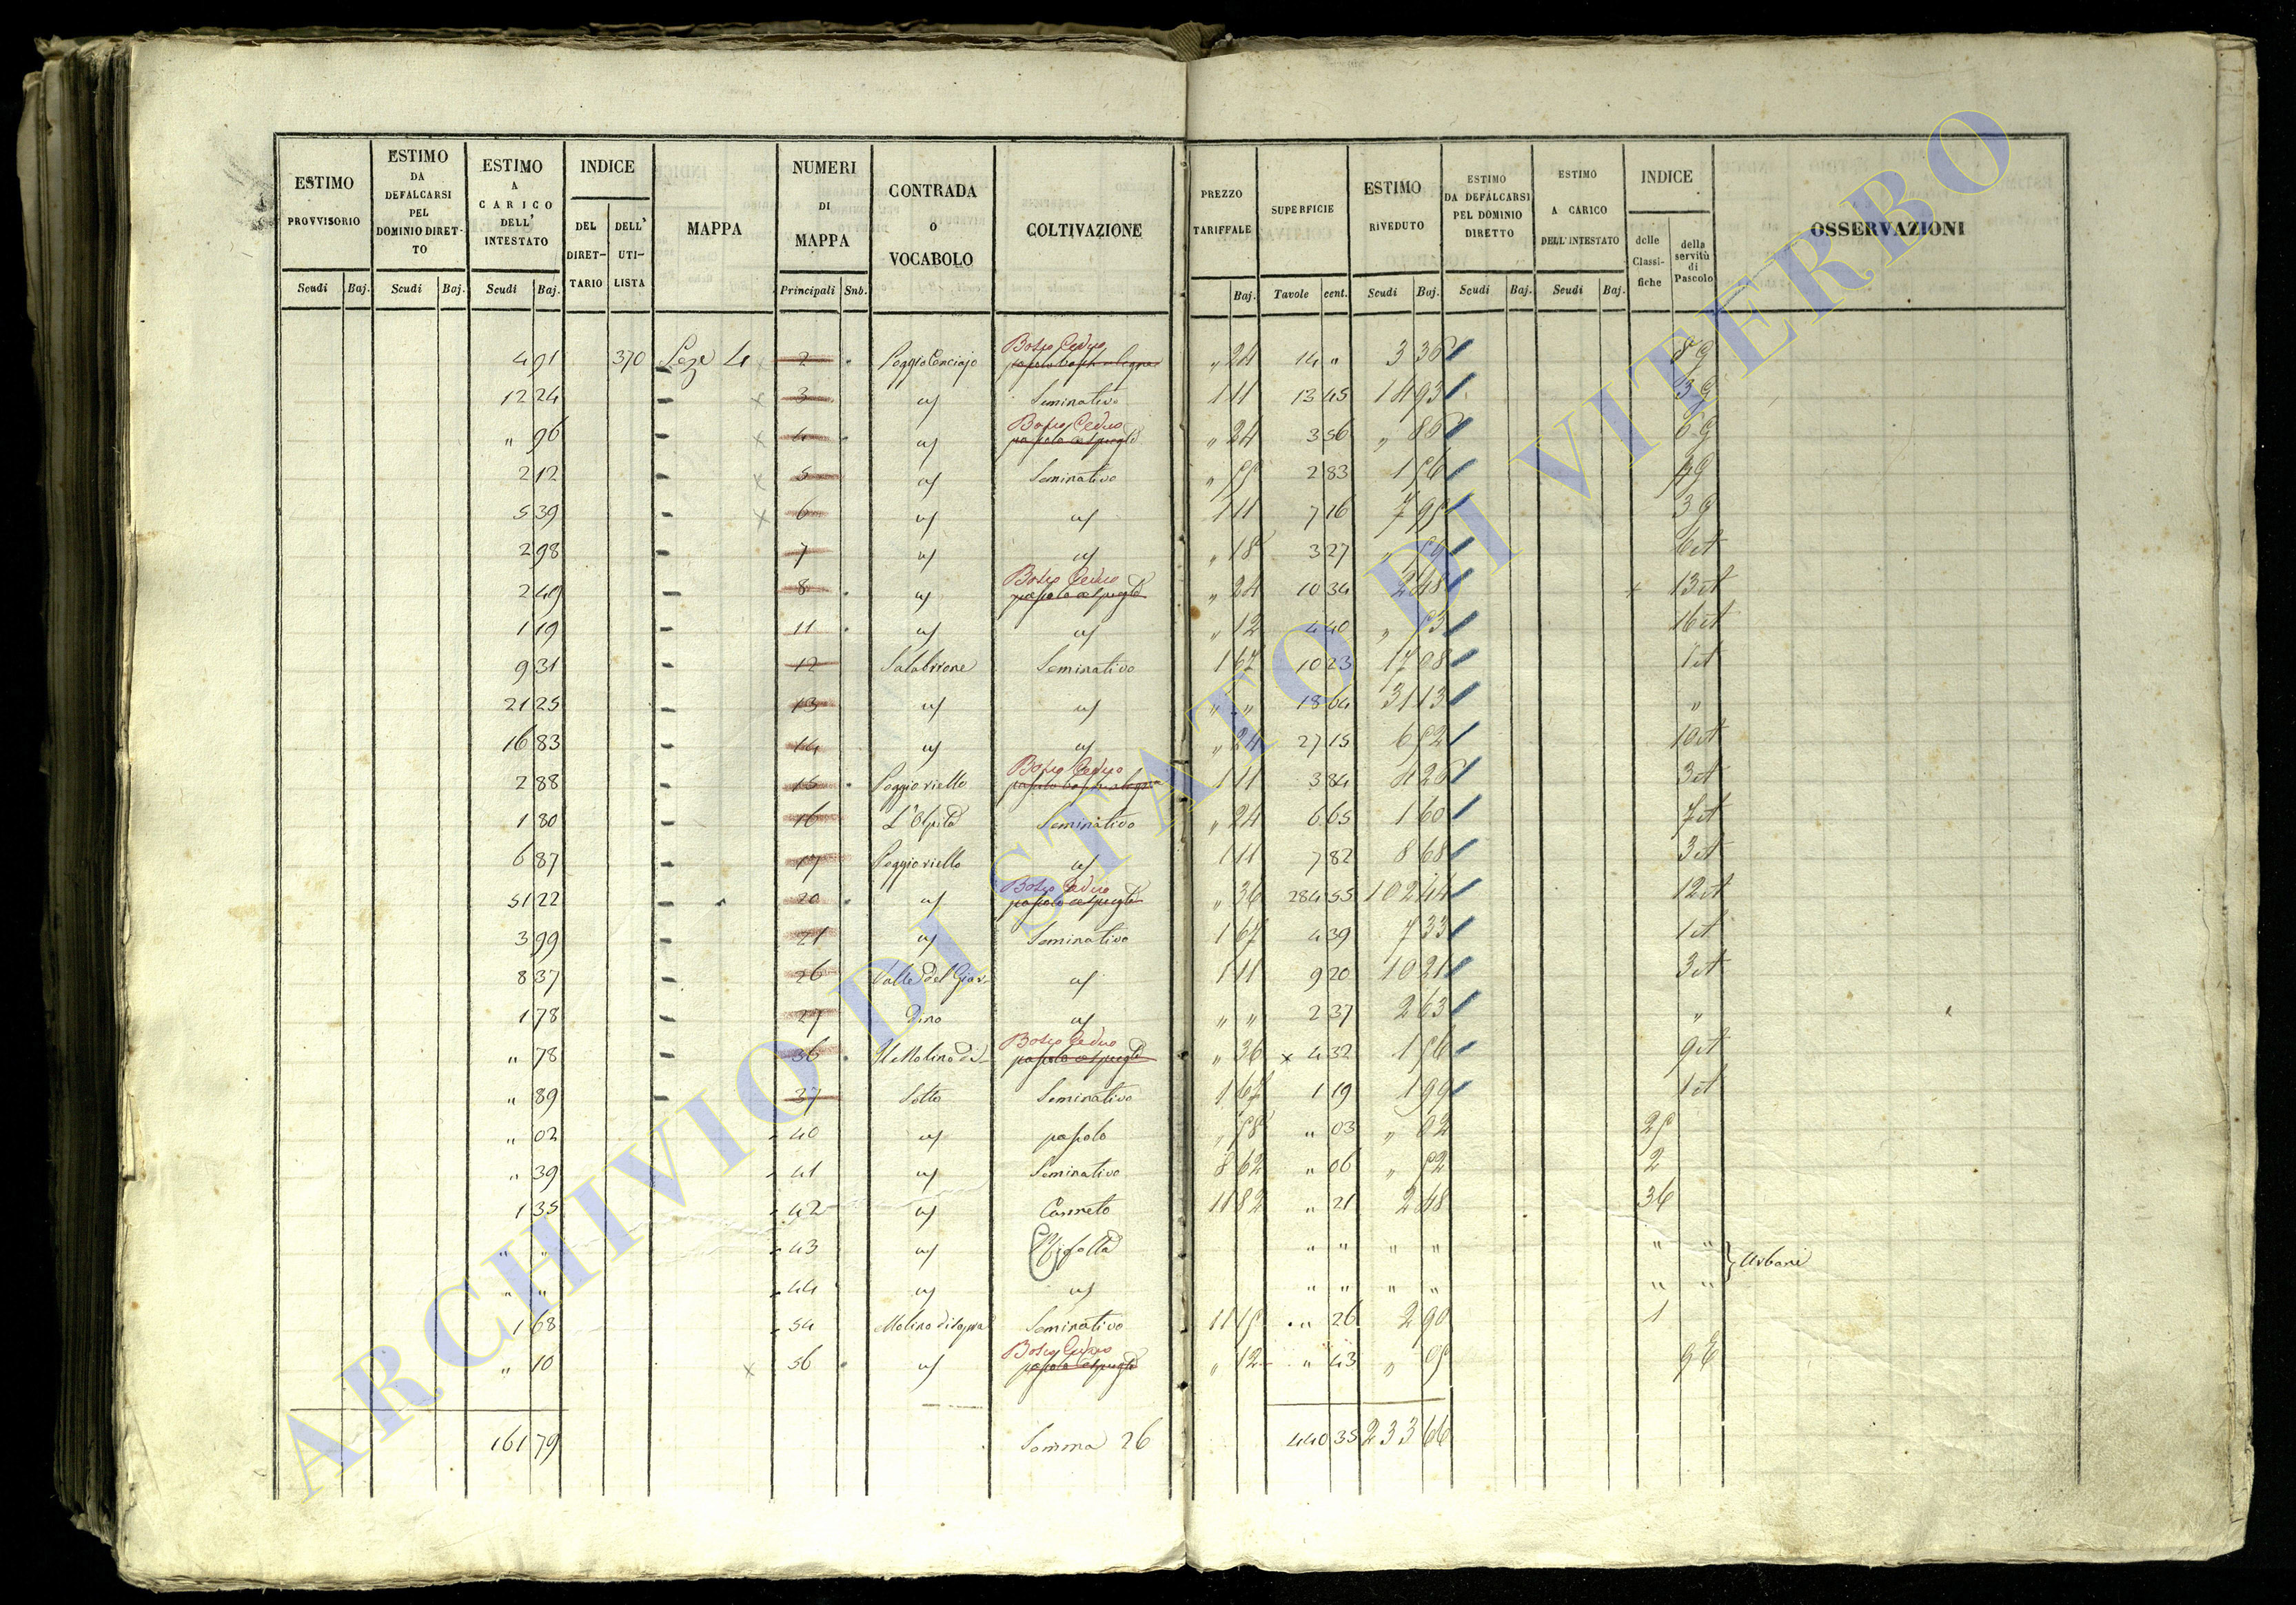 ESTIMO PROVVISORIO Scudi Baj.
ESTIMO DA DEFALCARSI PEL DOMINIO DIRET- TO Scudi Baj.
ESTIMO A CARICO DELL' INTESTATO Scudi Baj.
INDICE DEL DIRET- TARIO DELL' UTI- LISTA
MAPPA
NUMERI DI MAPPA Principali Sub.
CONTRADA O VOCABOLO
COLTIVAZIONE
PREZZO TARIFFALE Baj.
SUPERFICIE Tavole cent.
ESTIMO RIVEDUTO Scudi Baj.
ESTIMO DA DEFALCARSI PEL DOMINIO DIRETTO Scudi Baj.
ESTIMO A CARICO DELL'INTESTATO Scudi Baj.
INDICE delle Classi- fiche della servitù di Pascolo
OSSERVAZIONI
4 91 370 4 2 Bosco Ceduo " 24 14 " 3 36 8 G
12 24 - 3 Seminativo 1 11 13 45 14 93 3 G
" 96 - 4 Bosco Ceduo " 24 3 56 " 85 6 G
2 12 - 5 Seminativo " 55 2 83 1 56 4 G
5 39 - 6 1 11 7 16 7 95 3 G
2 98 - 7 " 18 3 27 " 59
2 49 - 8 Bosco Ceduo " 24 10 34 2 48 + 13 A
1 19 - 11 " 12 4 40 " 53 16 A
9 31 - 12 Seminativo 1 67 10 23 17 08 1 A
21 25 - 13 " " 18 64 31 13 "
16 83 - 14 " 24 27 15 6 52 10 A
2 88 - 15 Poggioriello Bosco Ceduo 1 11 3 84 4 26 3 A
1 80 - 16 Seminativo " 24 6 65 1 60 7 A
6 87 - 17 Poggioriello 1 11 7 82 8 68 3 A
51 22 - 20 Bosco Ceduo " 36 284 55 102 44 12 A
3 99 - 21 Seminativo 1 67 4 39 7 33 1 A
8 37 - 26 Valle del Giar- 1 11 9 20 10 21 3 A
1 78 - 27 dino " " 2 37 2 63 "
" 78 - 36 Il Molino di Bosco Ceduo " 36 x 4 32 1 56 9 A
" 89 - 37 Sotto Seminativo 1 67 1 19 1 99 1 A
" 02 40 pascolo " 58 " 03 " 02 25
" 39 41 Seminativo 8 62 " 06 " 52 2
1 35 42 Canneto 11 82 " 21 2 48 36
" " 43 " " " " " "
Urbani
" " 44 " " " " " "
1 68 54 Molino di sopra Seminativo 11 15 " 26 2 90 1
" 10 x 56 Bosco Ceduo " 12 " 43 " 05 9 E
161 79 Somma 26 440 35 233 66
ARCHIVIO DI STATO DI VITERBO